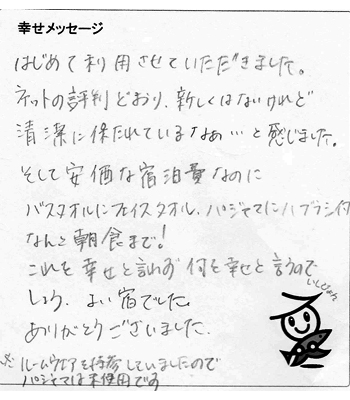 幸せメッセージ
はじめて利用させていただきました。
ネットの評判どおり、新しくはないけれど
清潔に保たれているなぁ…と感じました。
そして安価な宿泊費なのに
バスタオルにフェイスタオル、パジャマにハブラシ付
なんと朝食まで!
これを幸せと言わず何を幸せと言うので
しょう、よい宿でした。
ありがとうございました。
ルームウェアを持参していましたので
パジャマは未使用です